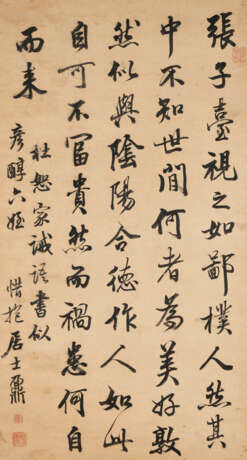 張子臺視之如鄙樸人然其
中不知世間何者為美好敦
然似與陰陽合德作人如此
自可不富貴然而禍患何自
而来
杜恕家誡語書似
彦醇六姪
惜抱居士鼐